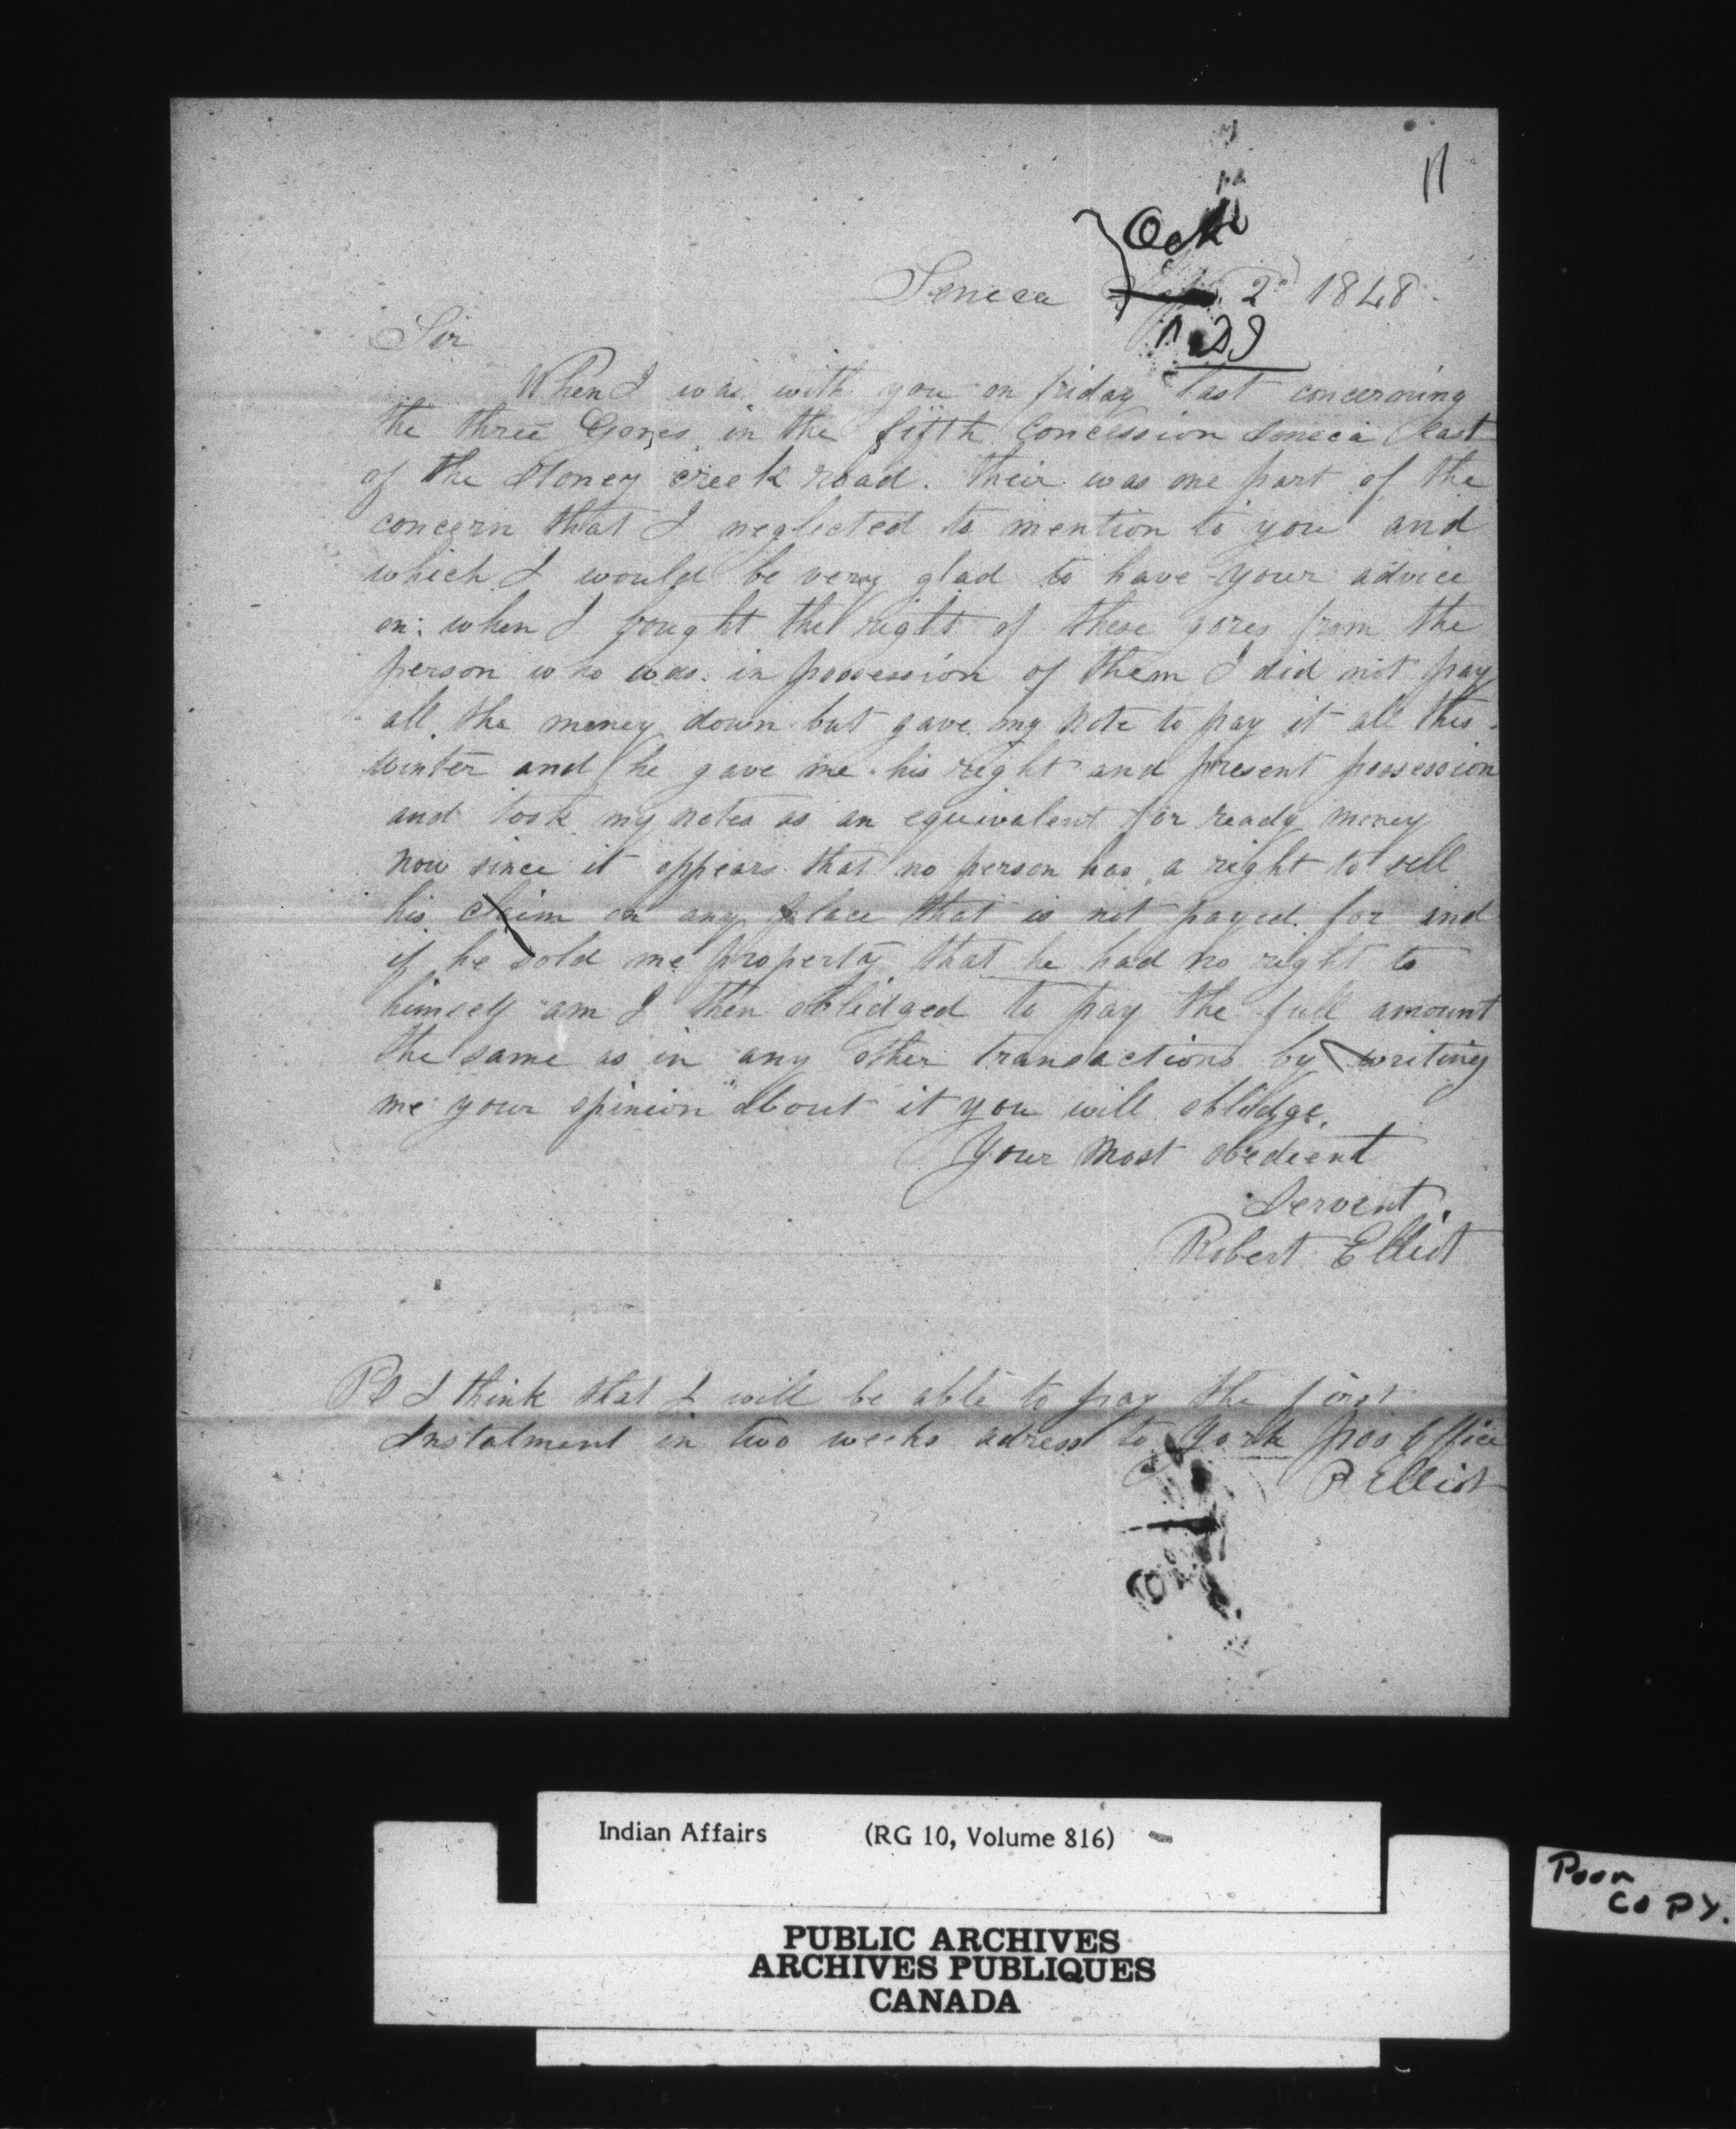 11
Octr
Seneca 2d 1848
Sir
When I was with you on friday last concerning
the three Gores in the fifth Concession Seneca East
of the Stoney creek road. their was one part of the
concern that I neglected to mention to you and
which I would be very glad to have your advice
on: when I bought the right of these gores from the
person who was in possession of them I did not pay
all the money down but gave my note to pay it all this
winter and he gave me his right and present possession
and took my notes as an equivalent for ready money
now since it appears that no person has a right to sell
his claim on any place that is not payed for and
if he sold me property that he had no right to
himself am I then oblidged to pay the full amount
the same as in any other transactions by writing
me your opinion about it you will oblidge,
Your Most obedient
Servent,
Robert Elliot
PS I think that I will be able to pay the first
Instalment in two weeks adress to York pos office
R Elliot
Indian Affairs (RG 10, Volume 816)
PUBLIC ARCHIVES
ARCHIVES PUBLIQUES
CANADA
Poor
COPY.